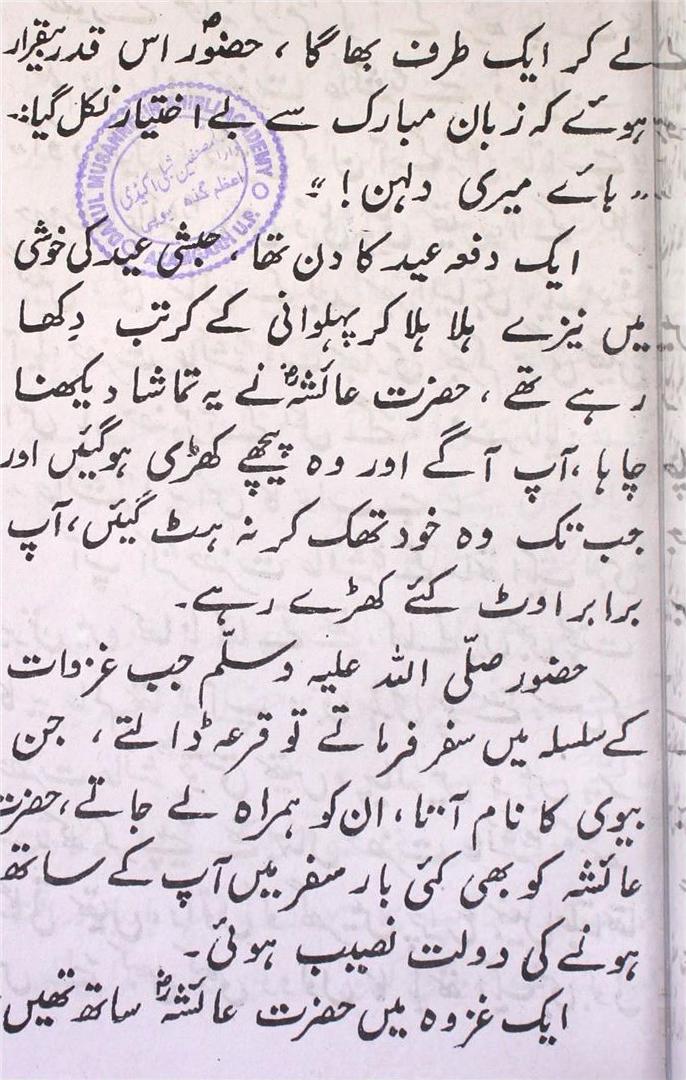 لے کر ایک طرف بھاگا ، حضورؐ اس قدر بیقرار
ہوئے کہ زبان مبارک سے بے اختیار نکل گیا:۔
"ہائے میری دلہن !"
ایک دفعہ عید کا دن تھا ، حبشی عید کی خوشی
میں نیزے ہلا ہلا کر پہلوانی کے کرتب دِکھا
رہے تھے ، حضرت عائشہؓ نے یہ تماشا دیکھنا
چاہا ، آپ آگے اور وہ پیچھے کھڑی ہوگیئں اور
جب تک وہ خود تھک کر نہ ہٹ گیئں ، آپ
برابر اوٹ کئے کھڑے رہے۔
حضور صلّی اللہ علیہ وسلّم جب غزوات
کے سلسلہ میں سفر فرماتے تو قرعہ ڈالتے ، جن
بیوی کا نام آتا ، ان کو ہمراہ لے جاتے ، حضرت
عائشہ کو بھی کئی بار سفر میں آپ کے ساتھ
ہونے کی دولت نصیب ہوئی۔
ایک غزوہ میں حضرت عائشہؓ ساتھ تھیں